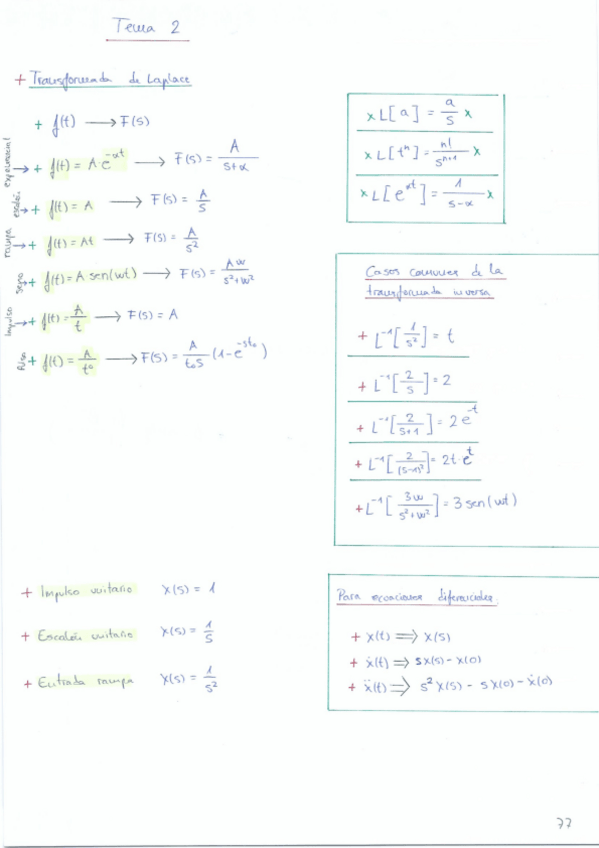 Tema 2
+ Transformada de Laplace
+ f(t) → F(s)
exponencial → + f(t) = A·e^-αt → F(s) = A/(s+α)
escalón → + f(t) = A → F(s) = A/s
rampa → + f(t) = At → F(s) = A/s²
seno → + f(t) = A sen(wt) → F(s) = Aw/(s²+w²)
Impulso → + f(t) = A/t → F(s) = A
+ f(t) = A/t⁰ → F(s) = A/(t₀s) (1-e^-st₀)
x L[a] = a/s x
x L[tⁿ] = n!/sⁿ⁺¹ x
x L[e^αt] = 1/(s-α) x
Casos comunes de la
transformada inversa
+ L⁻¹[1/s²] = t
+ L⁻¹[2/s] = 2
+ L⁻¹[2/(s+1)] = 2e^-t
+ L⁻¹[2/(s-1)²] = 2t·e^t
+ L⁻¹[3w/(s²+w²)] = 3 sen(wt)
+ Impulso unitario X(s) = 1
+ Escalón unitario X(s) = 1/s
+ Entrada rampa X(s) = 1/s²
Para ecuaciones diferenciales:
+ x(t) ⇒ X(s)
+ ẋ(t) ⇒ sX(s) - X(0)
+ ẍ(t) ⇒ s²X(s) - sX(0) - ẋ(0)
77